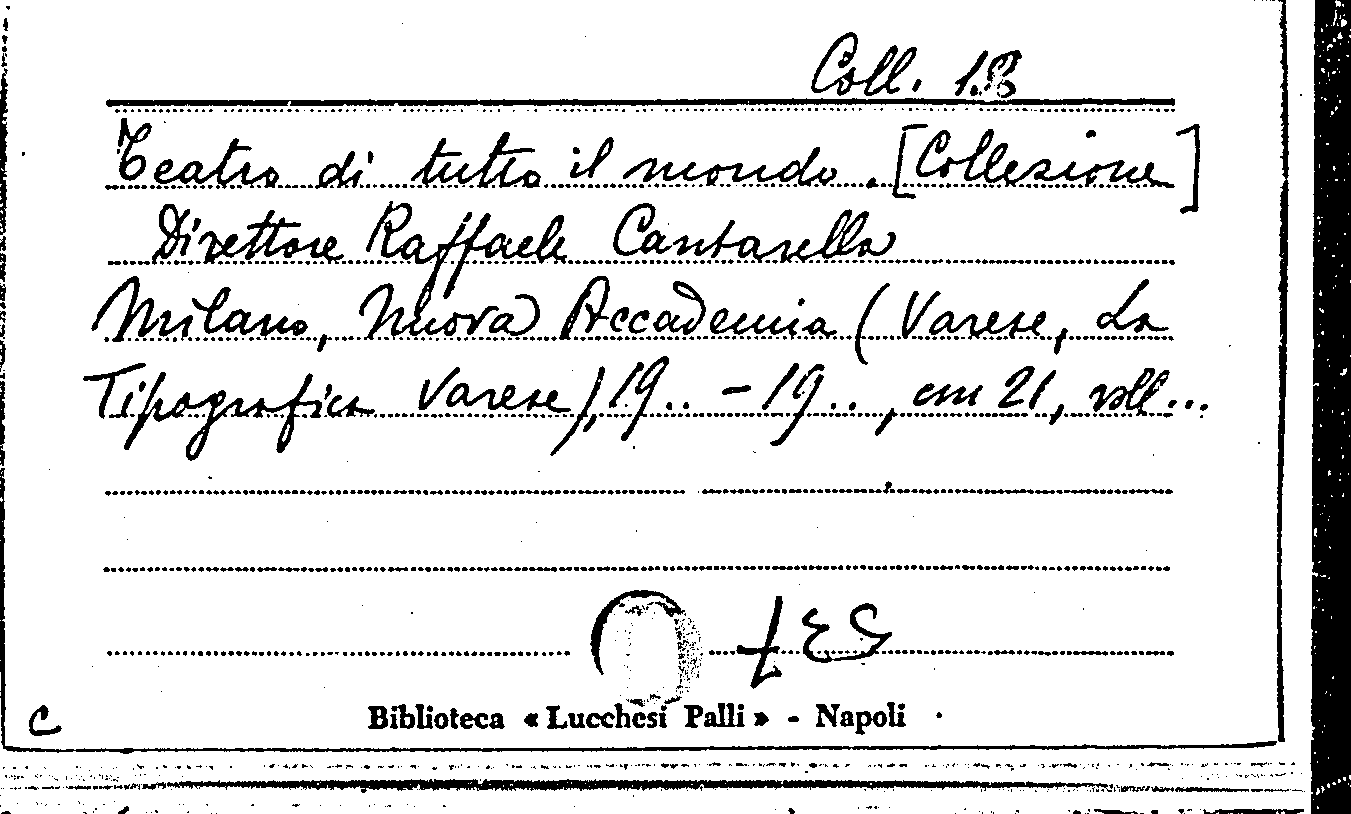 Coll. 18
Teatro di tutto il mondo. [Collezione]
Direttore Raffaele Cantarella
Milano, Nuova Accademia (Varese, La
Tipografica Varese), 19.. - 19.., cm 21, voll...
C
Biblioteca « Lucchesi Palli » - Napoli